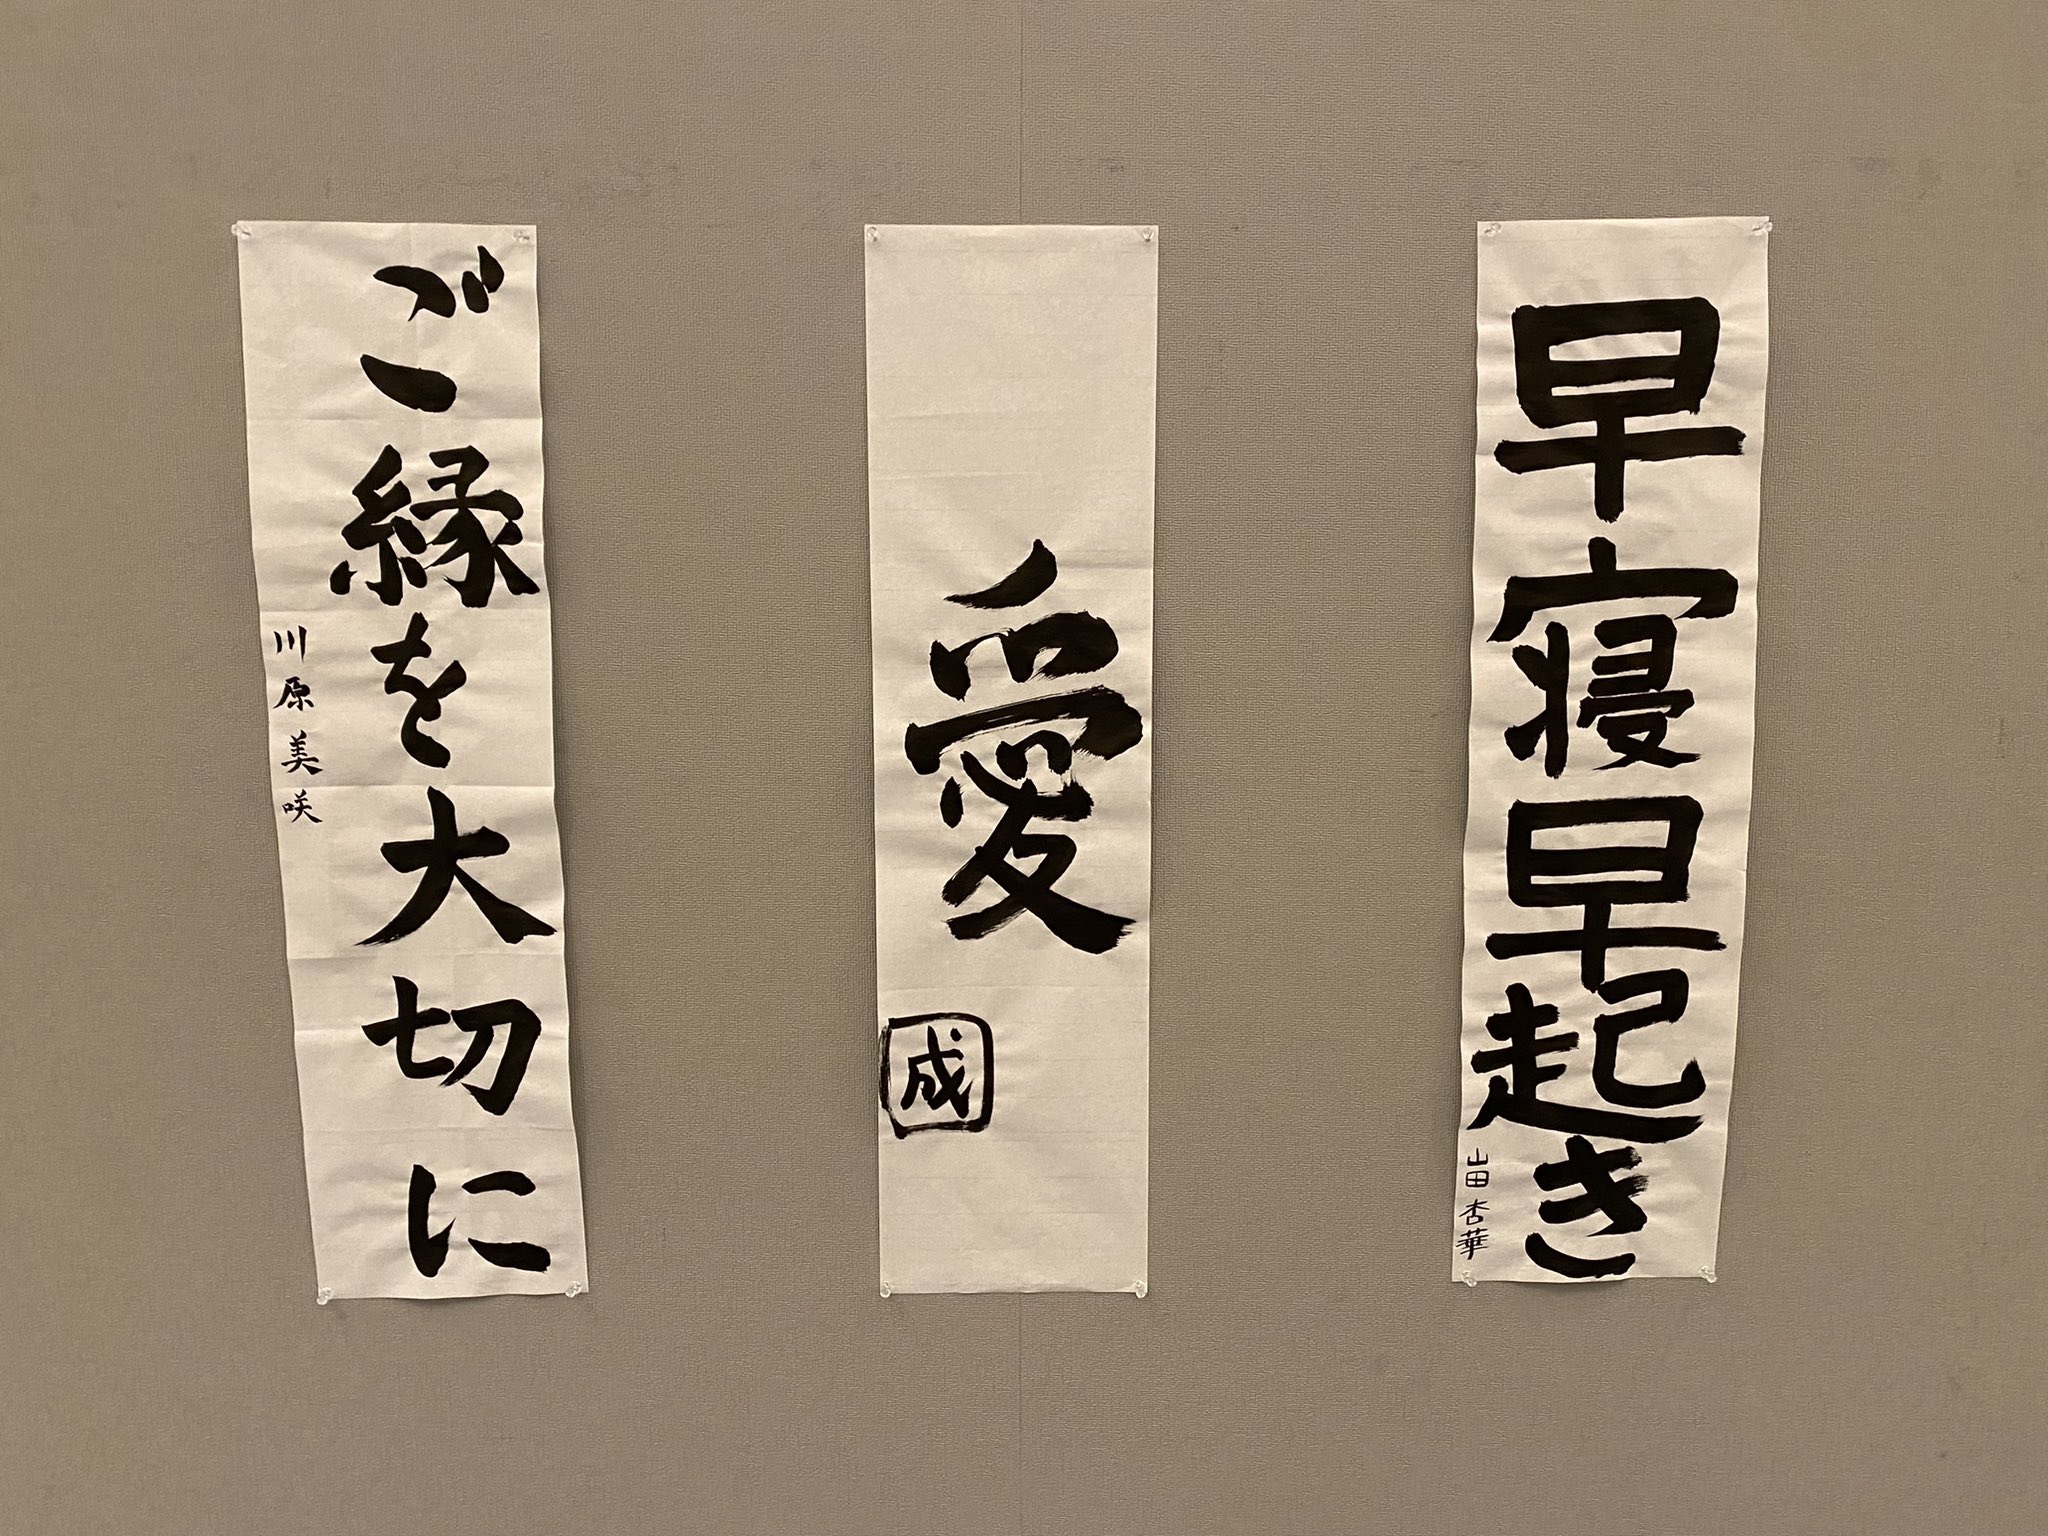 早寝早起き
山田杏華
愛
成
ご縁を大切に
川原美咲